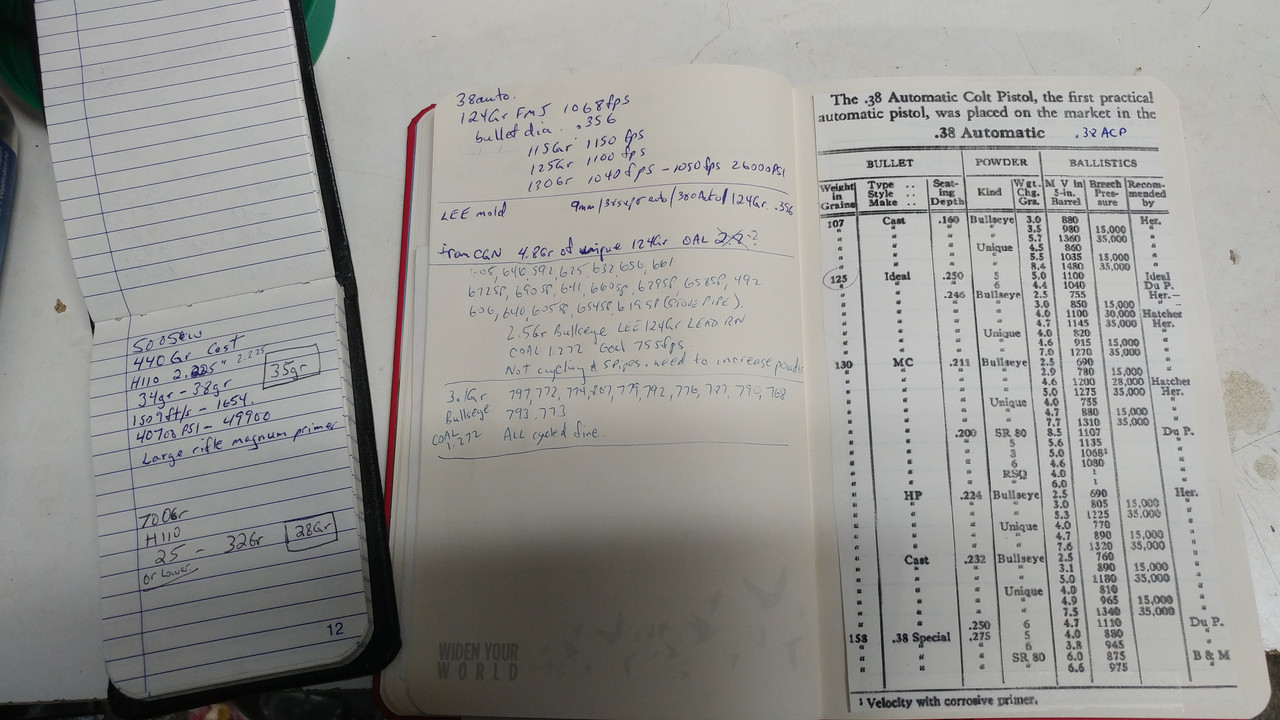 500S&W
440Gr Cast
H110 2.225" 2.225
34gr - 38gr 35gr
1509ft/s - 1654
40700PSI - 49900
Large rifle magnum primer
700Gr
H110
25 - 32Gr 28Gr
or Lower
12
38auto.
124Gr FMJ 1068fps
bullet dia. .356
115Gr 1150 fps
125Gr 1100 fps
130Gr 1040fps - 1050fps 26000PSI
LEE mold 9mm/38supr auto/380Auto/124Gr. .356
from CGN 4.8Gr of unique 124Gr OAL
605, 646, 592, 625, 632, 656, 661
672SP, 690SP, 641, 660SP, 629SP, 658SP, 492
606, 640, 605SP, 654SP, 619SP (STOVE PIPE).
2.5Gr Bullseye LEE 124Gr LEAD RN
COAL 1.272 Goal 755fps
Not cycling & SPipes. need to increase powder
3.1Gr 797, 772, 774, 807, 779, 792, 776, 787, 790, 768
Bullseye 793. 773
COAL 1.272 ALL cycled fine.
WIDEN YOUR
WORLD
The .38 Automatic Colt Pistol, the first practical
automatic pistol, was placed on the market in the
.38 Automatic .38 ACP
BULLET POWDER BALLISTICS
Weight in Grains Type Style Make Seating Depth Kind Wgt. Chg. Grs. M V in 5-in. Barrel Breech Pressure Recommended by
107 Cast .160 Bullseye 3.0 880 Her.
" " " " 3.5 980 15,000 "
" " " " 5.7 1360 35,000 "
" " " Unique 4.5 860 "
" " " " 5.5 1035 15,000 "
" " " " 8.4 1480 35,000 "
125 Ideal .250 5 5.0 1100 Ideal
" " " 6 4.4 1040 Du P.
" " .246 Bullseye 2.5 755 Her.
" " " " 3.0 850 15,000 "
" " " " 4.0 1100 30,000 Hatcher
" " " " 4.7 1145 35,000 Her.
" " " Unique 4.0 820 "
" " " " 4.6 915 15,000 "
" " " " 7.0 1270 35,000 "
130 MC .211 Bullseye 2.5 690 "
" " " " 2.9 780 15,000 "
" " " " 4.6 1200 28,000 Hatcher
" " " " 5.0 1275 35,000 Her.
" " " Unique 4.0 755 "
" " " " 4.7 880 15,000 "
" " " " 7.7 1310 35,000 "
" " .200 SR 80 8.5 1107 Du P.
" " " 5 5.6 1135 "
" " " 3 5.0 1068¹ "
" " " 6 4.6 1080 "
" " " RSQ 4.0 ¹ "
" " " " 6.0 ¹ "
" HP .224 Bullseye 2.5 690 Her.
" " " " 3.0 805 15,000 "
" " " " 5.3 1225 35,000 "
" " " Unique 4.0 770 "
" " " " 4.7 890 15,000 "
" " " " 7.6 1320 35,000 "
" Cast .232 Bullseye 2.5 760 "
" " " " 3.1 890 15,000 "
" " " " 5.0 1180 35,000 "
" " " Unique 4.0 810 "
" " " " 4.9 965 15,000 "
" " " " 7.5 1340 35,000 "
" " .250 6 4.7 1110 Du P.
158 .38 Special .275 5 4.0 880 "
" " " 6 3.8 965 "
" " " SR 80 6.0 875 B & M
" " " " 6.6 975 "
¹ Velocity with corrosive primer.